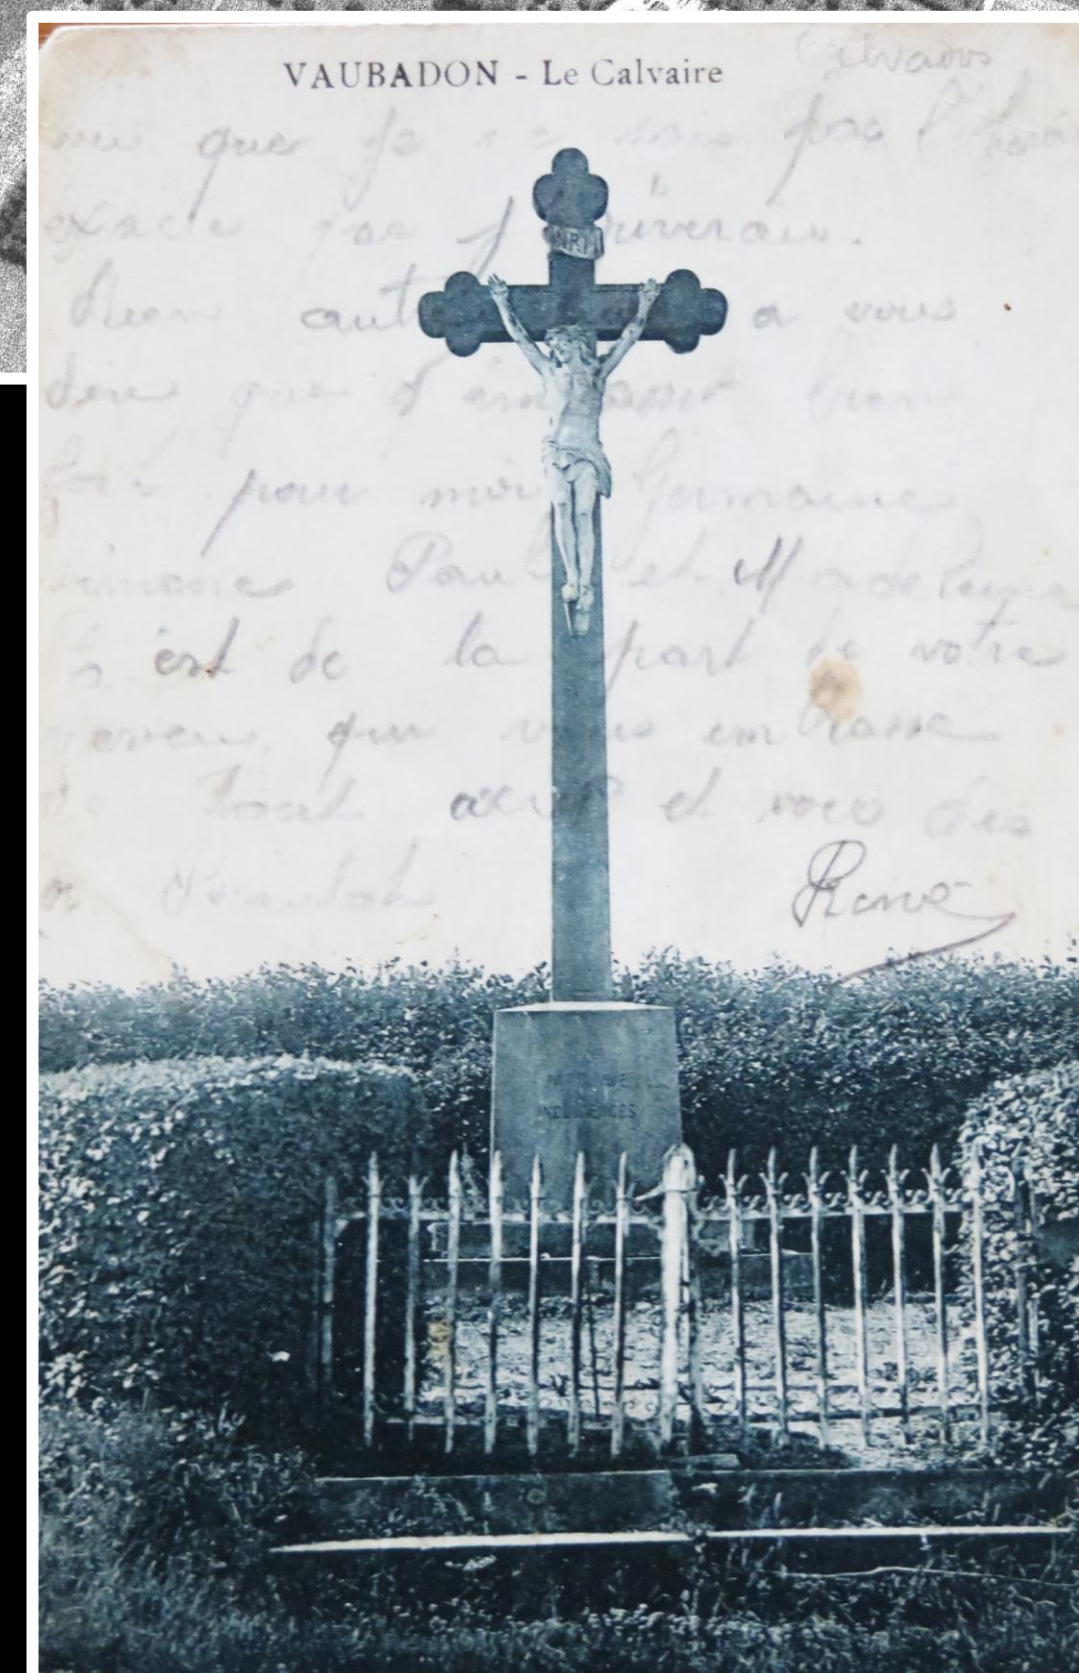 VAUBADON - Le Calvaire
Calvados
vu que je ne sais pas l'heure
exacte que j'arriverai.
Rien autre a vous
dire que d'embrasser bien
fort pour moi Germaine
Simone Paul et Madeleine
C'est de la part de votre
neveu qui vous embrasse
de tout et vous dis
a Bientot
René
INRI
INDULGENCES